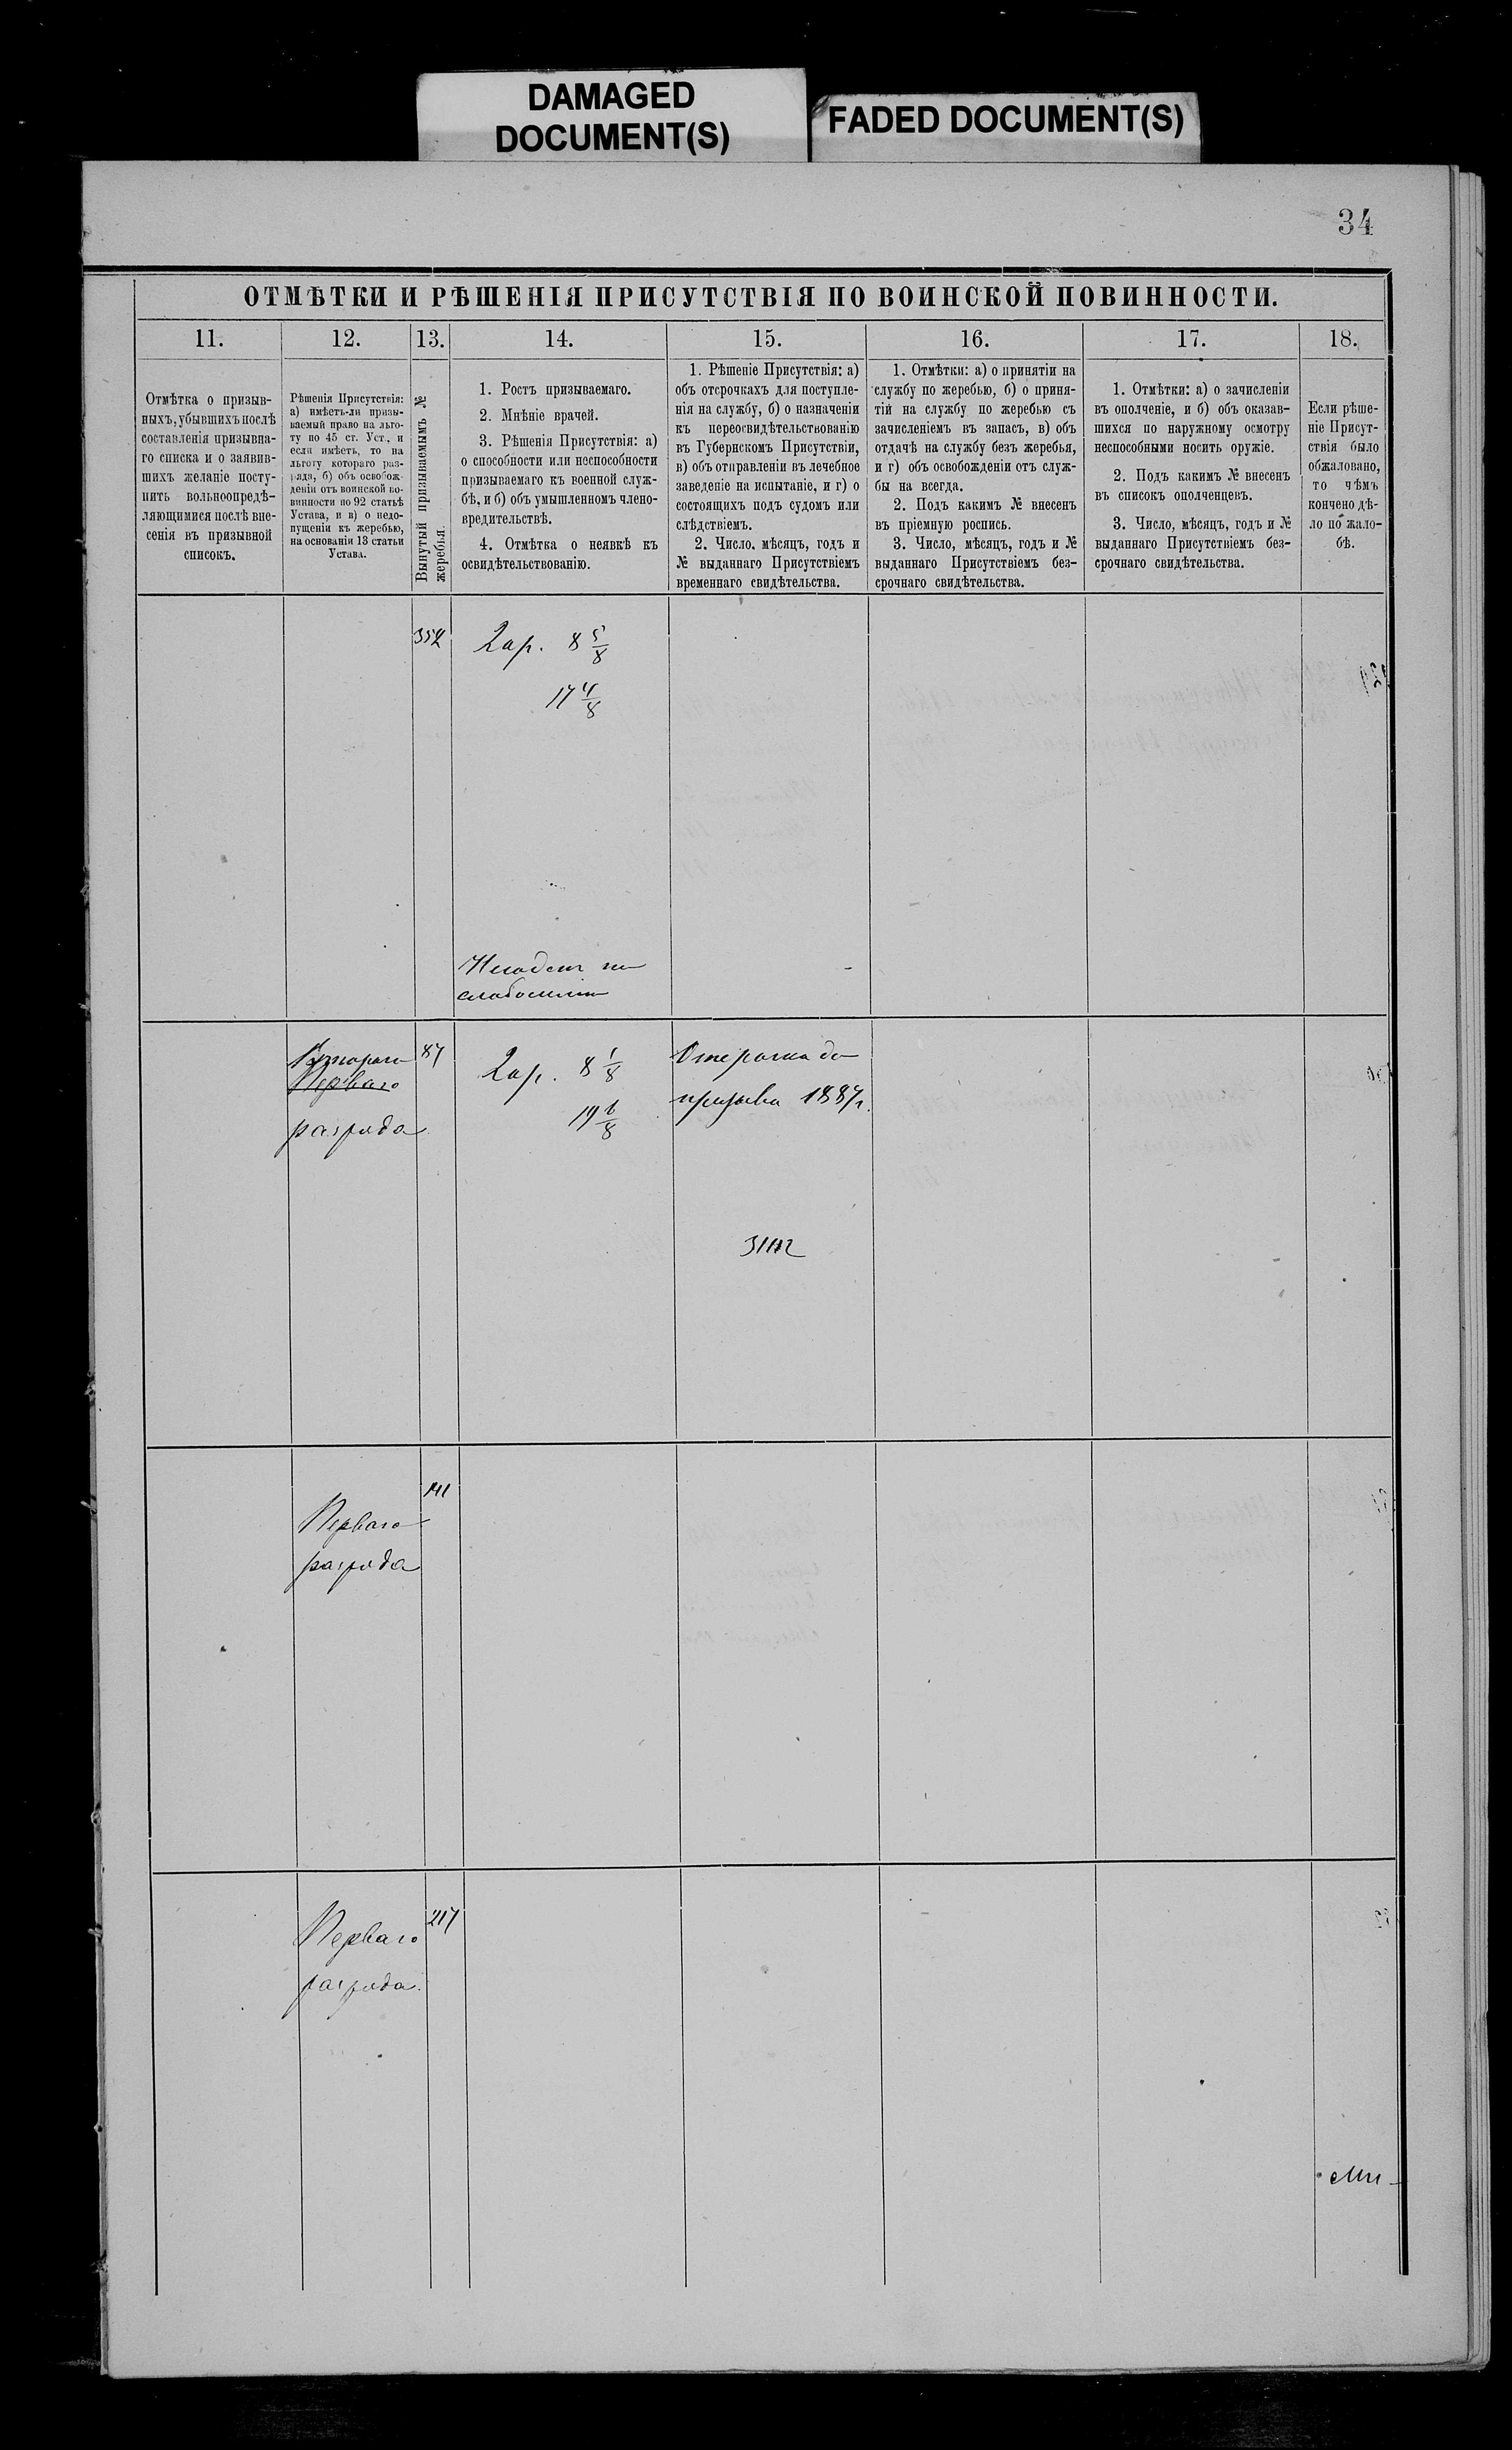 DAMAGED
DOCUMENT(S)
FADED DOCUMENT(S)
34
ОТМѢТКИ И РѢШЕНІЯ ПРИСУТСТВІЯ ПО ВОИНСКОЙ ПОВИННОСТИ.
11.
12.
13.
14.
15.
16.
17.
18.
Отмѣтка о призыв-
ныхъ, убывшихъ послѣ
составленія призывна-
го списка и о заявив-
шихъ желаніе посту-
пить вольноопредѣ-
ляющимися послѣ вне-
сенія въ призывной
списокъ.
Рѣшенія Присутствія:
а) имѣетъ-ли призы-
ваемый право на льго-
ту по 45 ст. Уст., и
если имѣетъ, то на
льготу котораго раз-
ряда, б) объ освобож-
деніи отъ воинской по-
винности по 92 статьѣ
Устава, и в) о недо-
пущеніи къ жеребью,
на основаніи 13 статьи
Устава.
Вынутый призываемымъ №
жеребья.
1. Ростъ призываемаго.
2. Мнѣніе врачей.
3. Рѣшенія Присутствія: а)
о способности или неспособности
призываемаго къ военной служ-
бѣ, и б) объ умышленномъ члено-
вредительствѣ.
4. Отмѣтка о неявкѣ къ
освидѣтельствованію.
1. Рѣшеніе Присутствія: а)
объ отсрочкахъ для поступле-
нія на службу, б) о назначеніи
къ переосвидѣтельствованію
въ Губернскомъ Присутствіи,
в) объ отправленіи въ лечебное
заведеніе на испытаніе, и г) о
состоящихъ подъ судомъ или
слѣдствіемъ.
2. Число, мѣсяцъ, годъ и
№ выданнаго Присутствіемъ
временнаго свидѣтельства.
1. Отмѣтки: а) о принятіи на
службу по жеребью, б) о приня-
тій на службу по жеребью съ
зачисленіемъ въ запасъ, в) объ
отдачѣ на службу безъ жеребья,
и г) объ освобожденіи отъ служ-
бы на всегда.
2. Подъ какимъ № внесенъ
въ пріемную роспись.
3. Число, мѣсяцъ, годъ и №
выданнаго Присутствіемъ без-
срочнаго свидѣтельства.
1. Отмѣтки: а) о зачисленіи
въ ополченіе, и б) объ оказав-
шихся по наружному осмотру
неспособными носить оружіе.
2. Подъ какимъ № внесенъ
въ списокъ ополченцевъ.
3. Число, мѣсяцъ, годъ и №
выданнаго Присутствіемъ без-
срочнаго свидѣтельства.
Если рѣше-
ніе Присут-
ствія было
обжаловано,
то чѣмъ
кончено дѣ-
ло по жало-
бѣ.
352
2 ар. 8 5/8
17 4/8
Втораго
Перваго
разряда
87
2 ар. 8 1/8
19 6/8
Отсрочка до
призыва 1887г.
Перваго
разряда
141
Перваго
разряда.
217